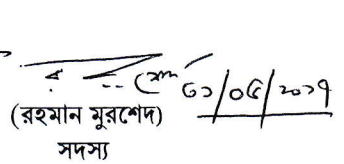 ৩১/০৫/২০১৭
(রহমান মুরশেদ)
সদস্য